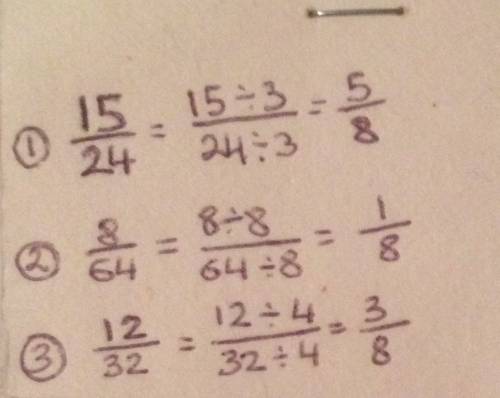 ① 15/24 = 15÷3/24÷3 = 5/8
② 8/64 = 8÷8/64÷8 = 1/8
③ 12/32 = 12÷4/32÷4 = 3/8